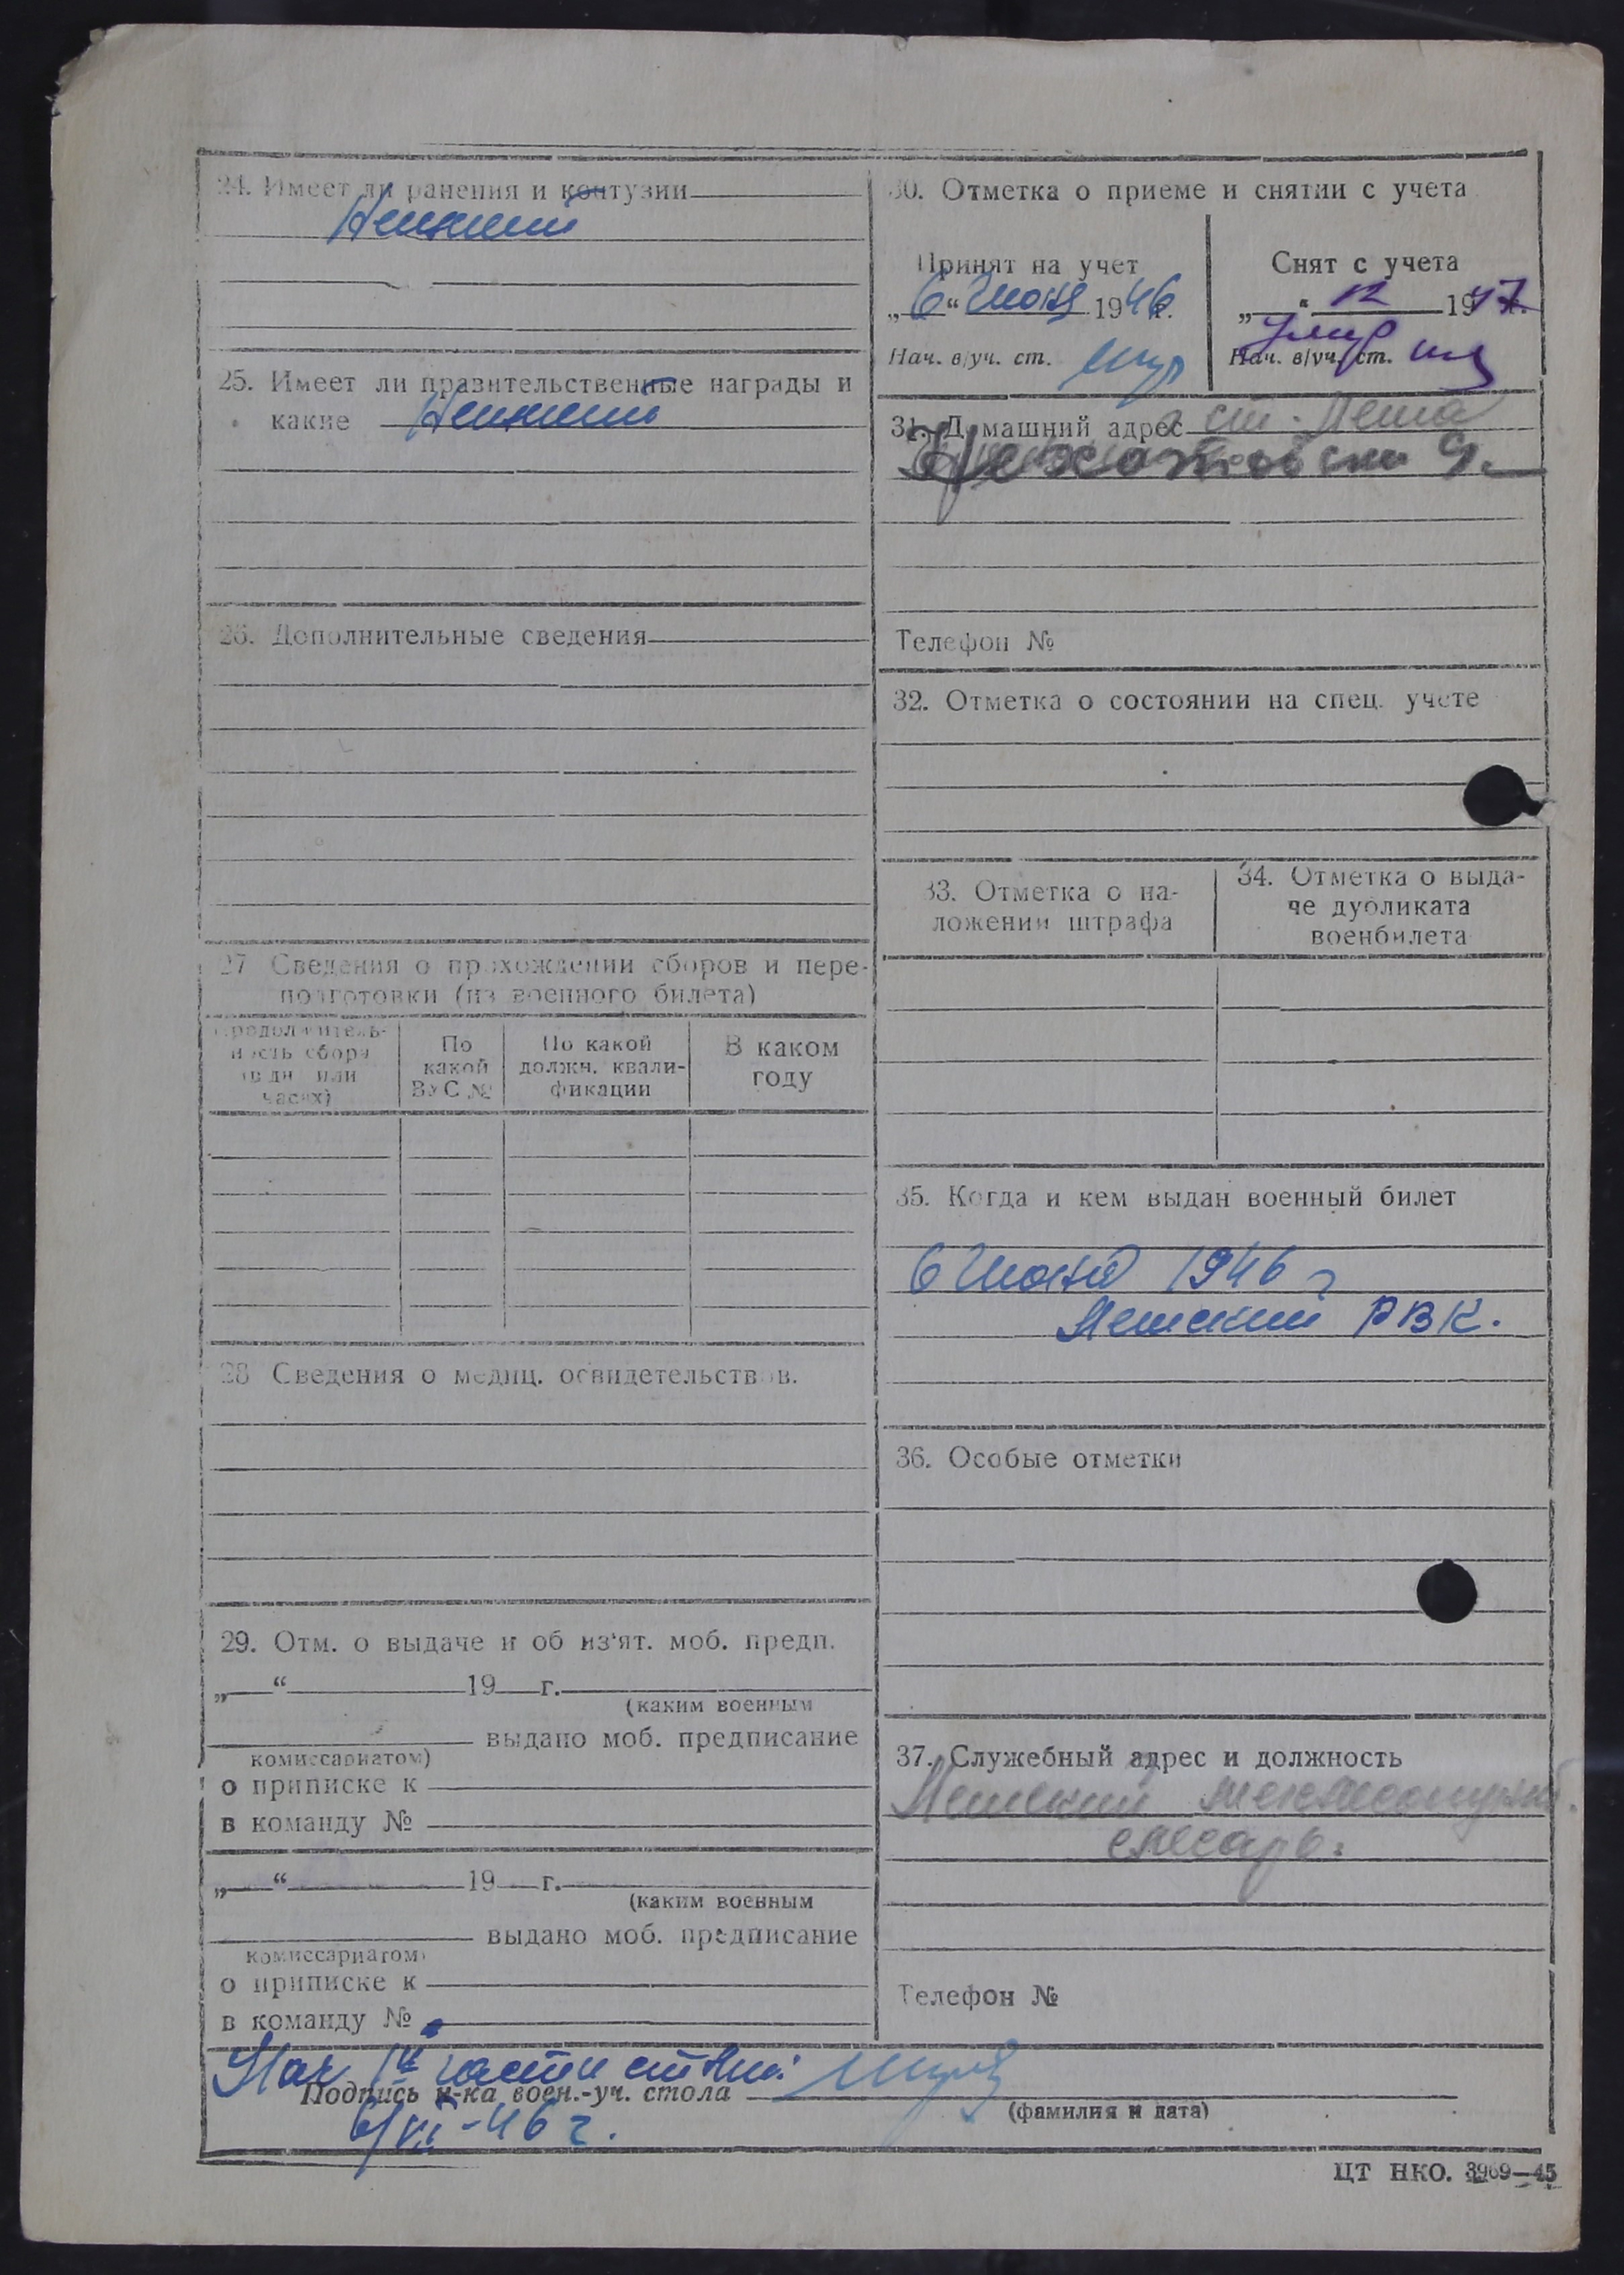 24. Имеет ли ранения и контузии
Не имеет
25. Имеет ли правительственные награды и
какие Не имеет
26. Дополнительные сведения
27 Сведения о прохождении сборов и пере-
подготовки (из военного билета)
Продолжитель-
ность сбора
(в дн. или
часах)
По
какой
ВУС №
По какой
должн. квали-
фикации
В каком
году
28 Сведения о медиц. освидетельствов.
29. Отм. о выдаче и об из'ят. моб. предп.
„ “ 19 г.
(каким военным
выдано моб. предписание
комиссариатом)
о приписке к
в команду №
„ “ 19 г.
(каким военным
выдано моб. предписание
комиссариатом)
о приписке к
в команду №
30. Отметка о приеме и снятии с учета
Принят на учет
„6“ Июня 1946 г.
Нач. в/уч. ст.
Снят с учета
„ “ 12 1947 г.
Умер
Нач. в/уч. ст.
31. Домашний адрес ст.
9.
Телефон №
32. Отметка о состоянии на спец. учете
33. Отметка о на-
ложении штрафа
34. Отметка о выда-
че дубликата
военбилета
35. Когда и кем выдан военный билет
6 Июня 1946 г
РВК.
36. Особые отметки
37. Служебный адрес и должность
слесарь.
Телефон №
Нач 1й части
Подпись н-ка воен.-уч. стола
(фамилия и дата)
6/VI-46 г.
ЦТ НКО. 3969—45